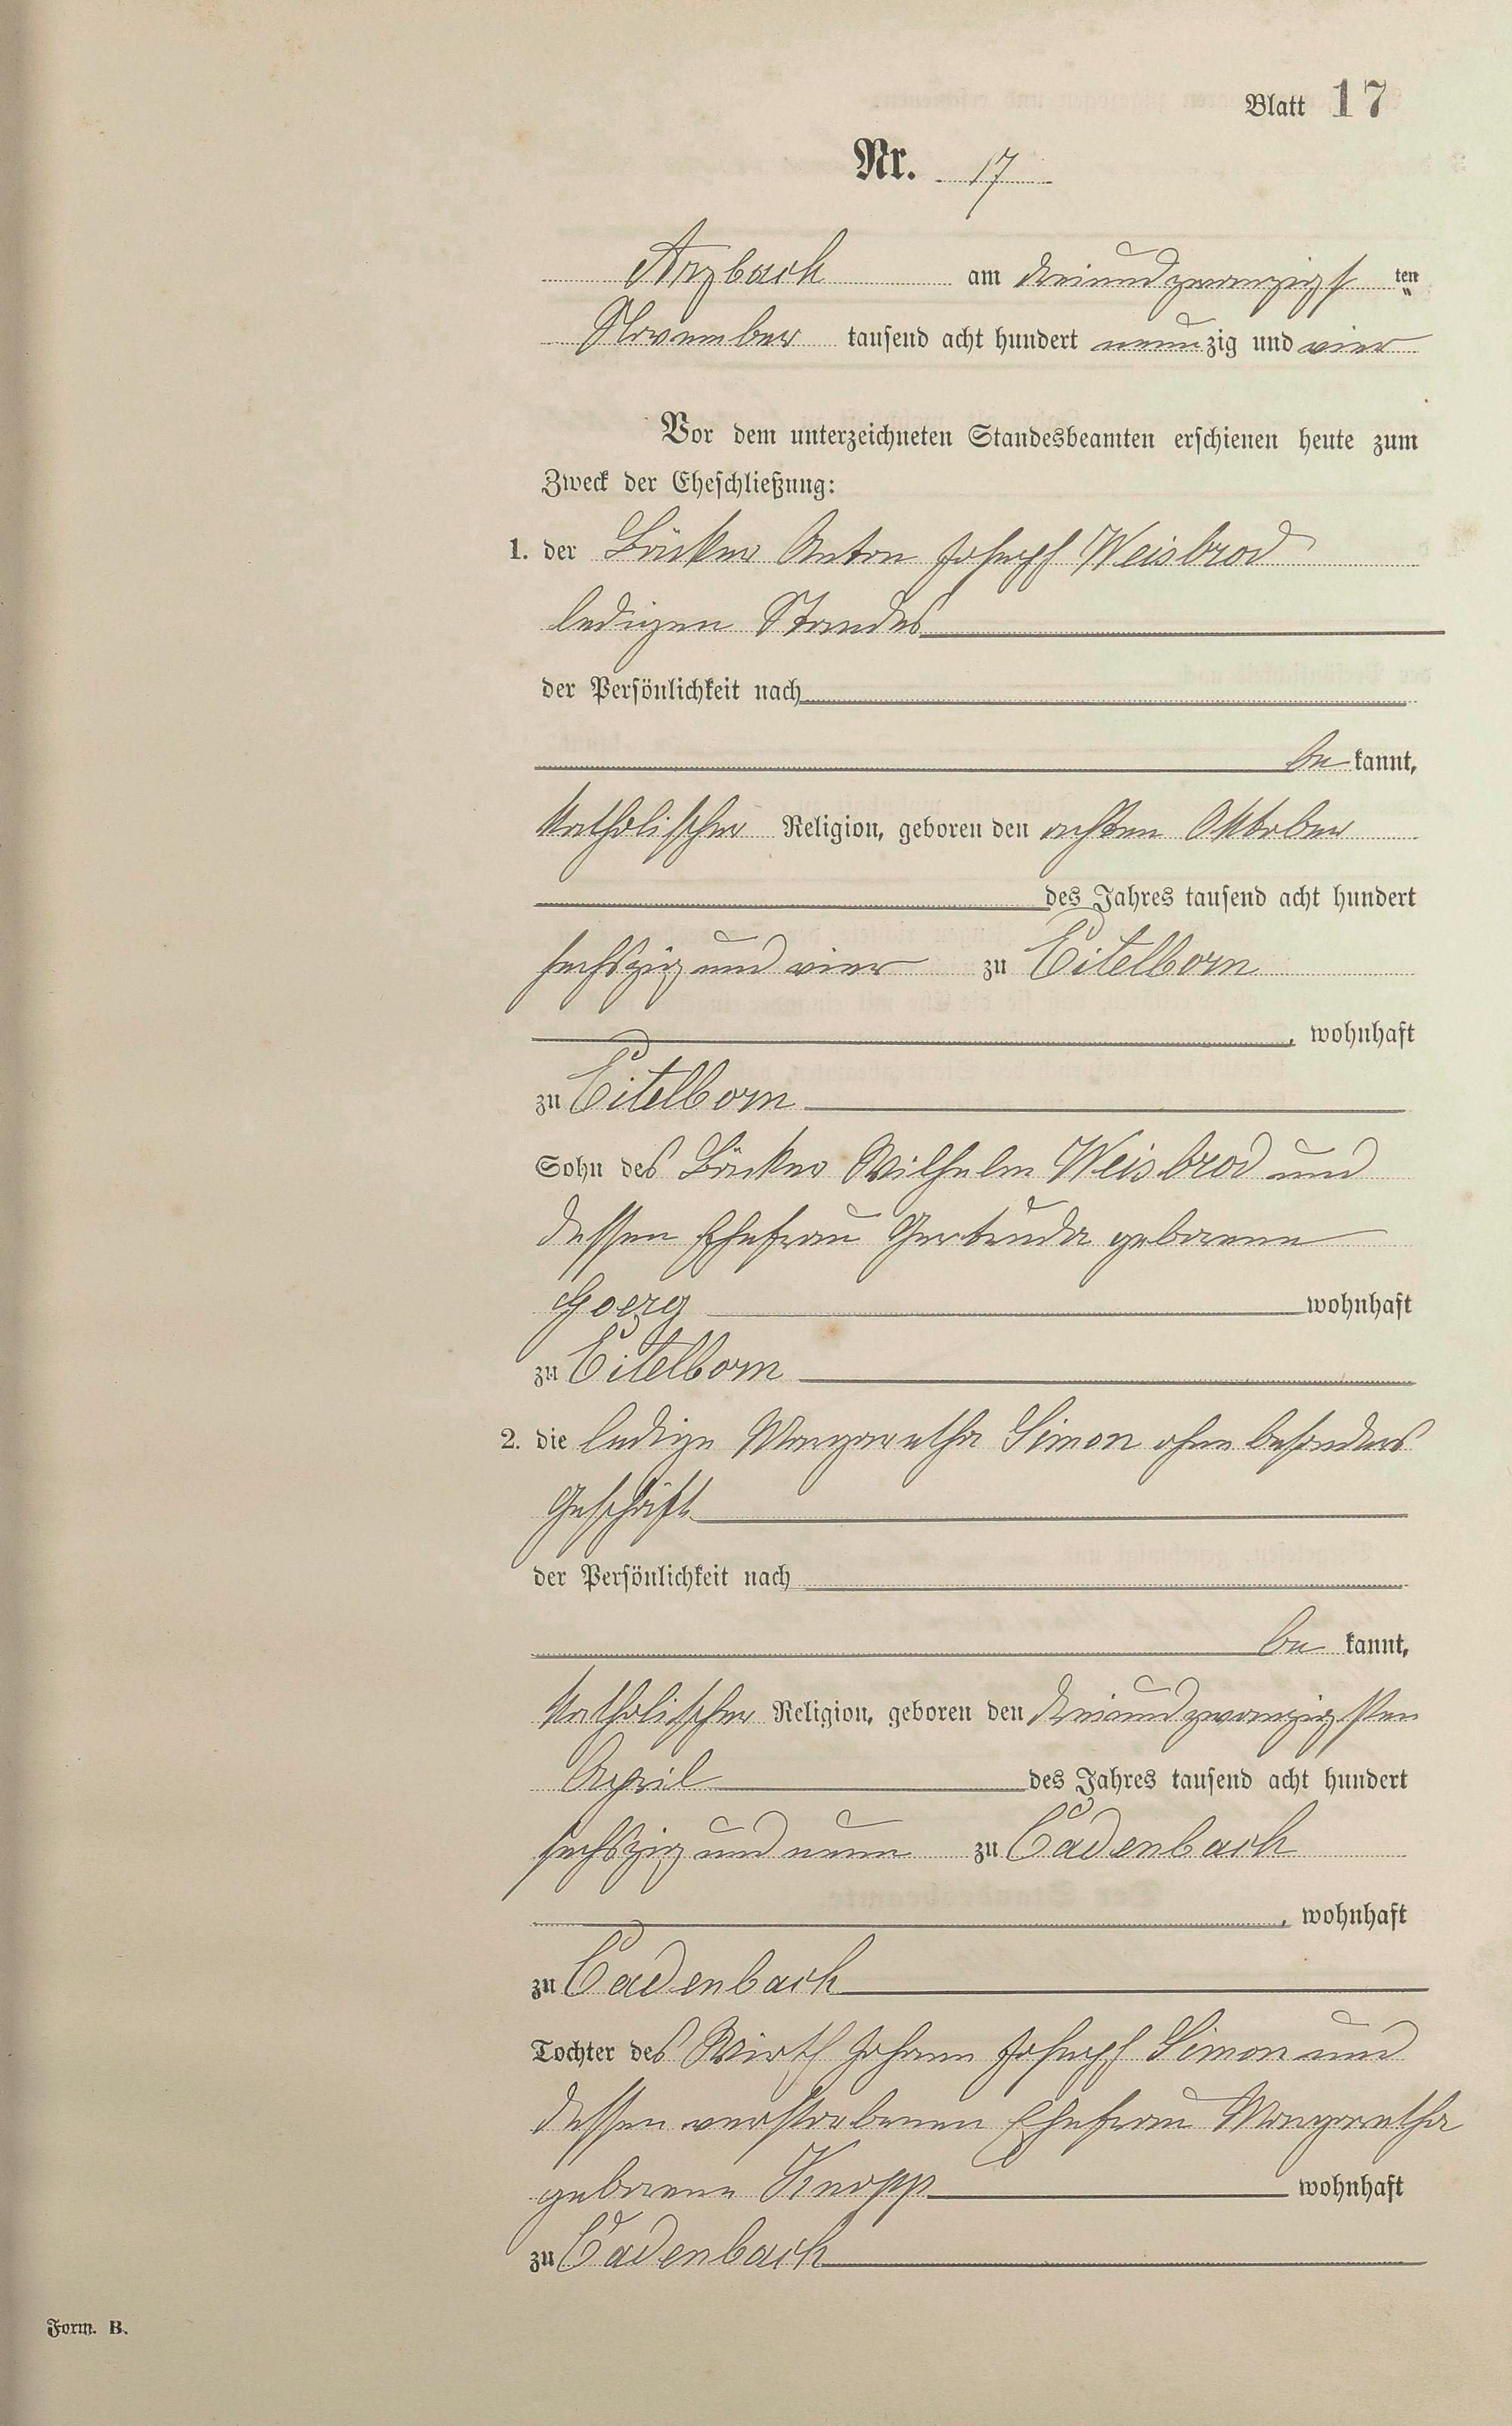 Blatt 17
Nr. 17
Arzbach am dreiundzwanzigst ten
November tausend acht hundert neunzig und vier
Vor dem unterzeichneten Standesbeamten erschienen heute zum
Zweck der Eheschließung:
1. der Bäcker Anton Joseph Weisbrod
ledigen Standes
der Persönlichkeit nach
be kannt,
katholischer Religion, geboren den achten Oktober
des Jahres tausend acht hundert
sechszig und vier zu Eitelborn
, wohnhaft
zu Eitelborn
Sohn des Bäcker Wilhelm Weisbrod und
dessen Ehefrau Gertruda geborene
Goerg wohnhaft
zu Eitelborn
2. die ledige Margaretha Simon ohne besonders
Geschäft
der Persönlichkeit nach
be kannt,
katholischer Religion, geboren den dreiundzwanzigsten
April des Jahres tausend acht hundert
sechszig und neun zu Cadenbach
, wohnhaft
zu Cadenbach
Tochter des Wirth Johann Joseph Simon und
dessen verstorbenen Ehefrau Margaretha
geborene Knopp wohnhaft
zu Cadenbach
Form. B.